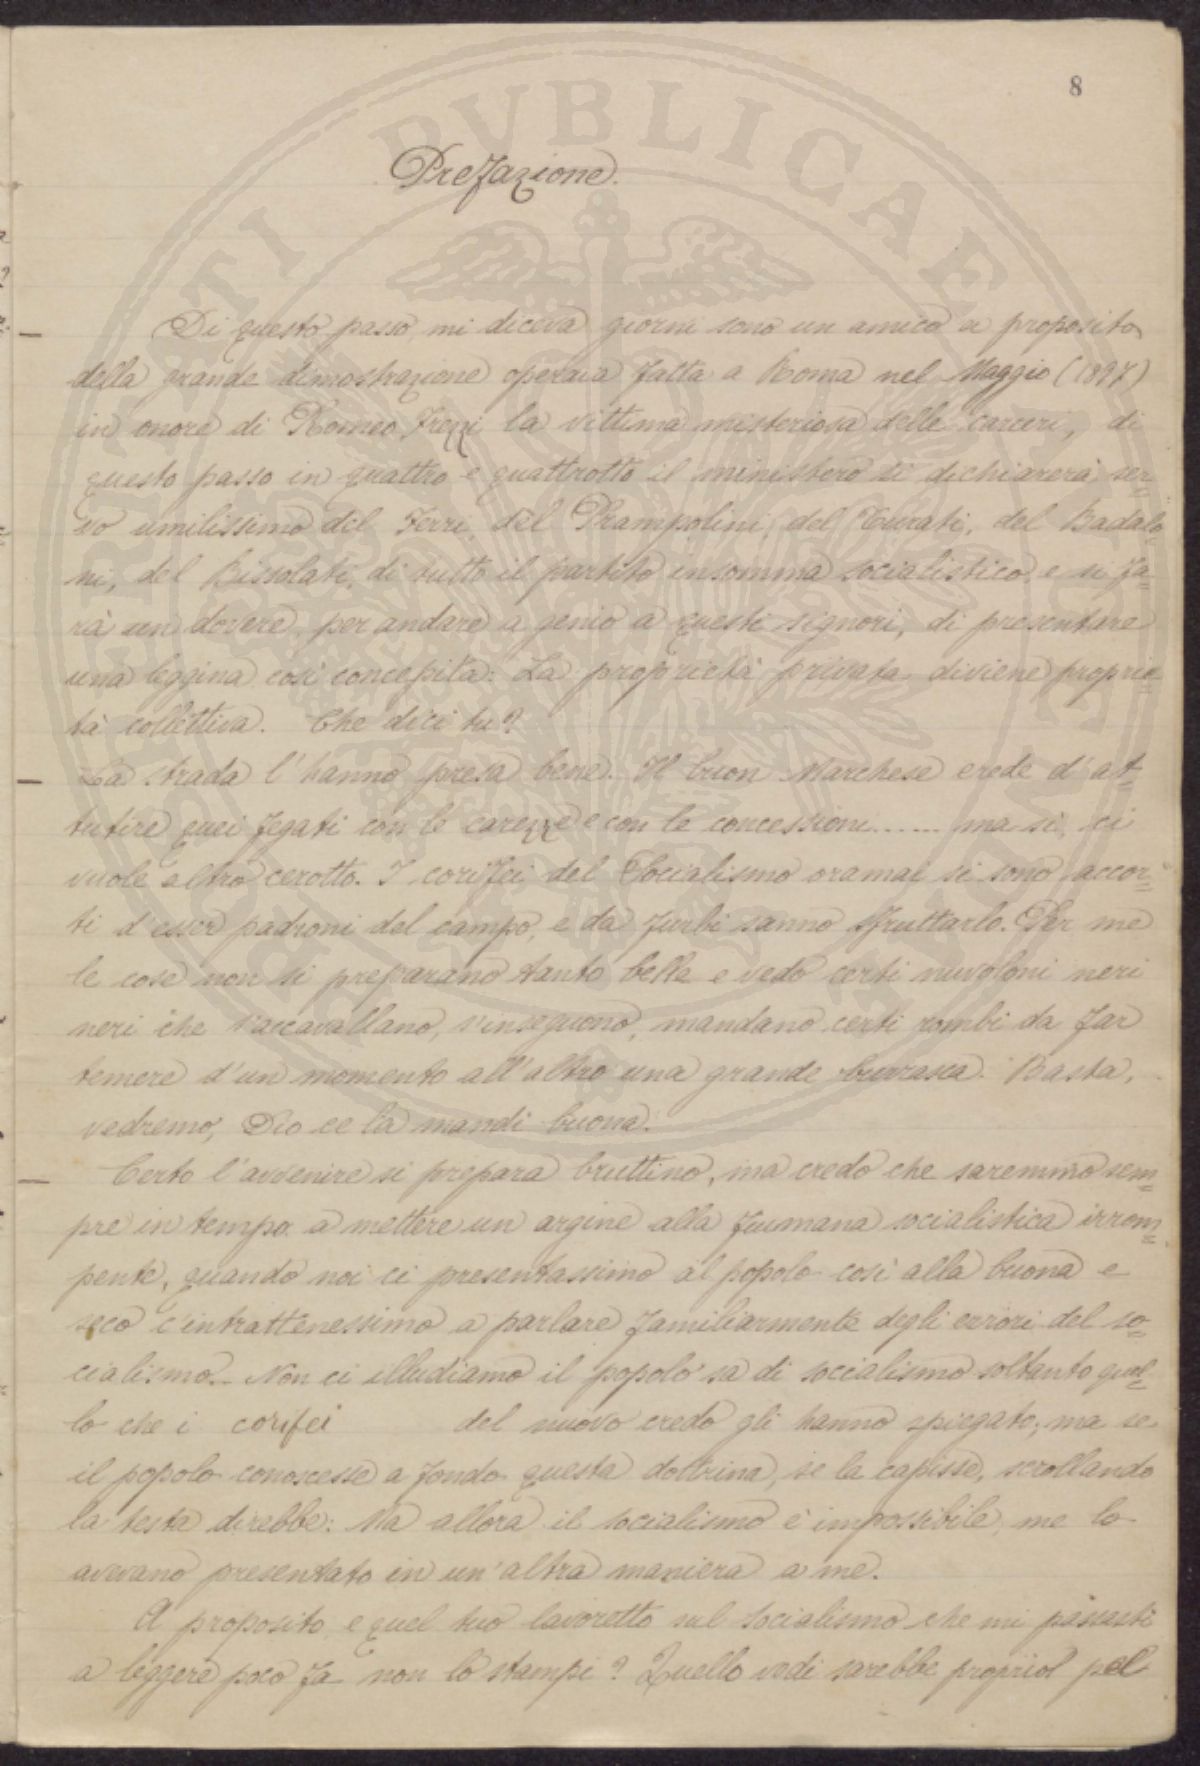 8
Prefazione.
— Di questo passo, mi diceva giorni sono un amico a proposito
della grande dimostrazione operaia fatta a Roma nel Maggio (1897)
in onore di Romeo Frezzi la vittima misteriosa delle carceri, di
questo passo in quattro e quattrotto il ministero si dichiarerà ser=
vo umilissimo del Ferri, del Prampolini, del Turati, del Badalo
ni, del Bissolati, di tutto il partito insomma socialistico, e si fa=
rà un dovere, per andare a genio a questi signori, di presentare
una leggina così concepita: La proprietà privata diviene proprie
tà collettiva. Che dici tu?
— La strada l'hanno presa bene. Il buon Marchese crede d'at=
tutire quei fegati con le carezze e con le concessioni....... ma sì, ci
vuole altro cerotto. I corifei del Socialismo oramai si sono accor=
ti d'esser padroni del campo, e da furbi sanno sfruttarlo. Per me
le cose non si preparano tanto belle e vedo certi nuvoloni neri
neri che s'accavallano, s'inseguono, mandano certi rombi da far
temere d'un momento all'altro una grande burrasca. Basta,
vedremo, Dio ce la mandi buona.
— Certo l'avvenire si prepara bruttino, ma credo che saremmo sem=
pre in tempo a mettere un argine alla fiumana socialistica irrom=
pente, quando noi ci presentassimo al popolo così alla buona e
seco c'intrattenessimo a parlare familiarmente degli errori del so=
cialismo. Non ci illudiamo il popolo sa di socialismo soltanto quel=
lo che i corifei del nuovo credo gli hanno spiegato; ma se
il popolo conoscesse a fondo questa dottrina, se la capisse, scrollando
la testa direbbe: Ma allora il socialismo è impossibile, me lo
avevano presentato in un'altra maniera a me.
A proposito, e quel tuo lavoretto sul socialismo che mi passasti
a leggere poco fa non lo stampi? Quello vedi sarebbe proprio pel
PVBLICAE